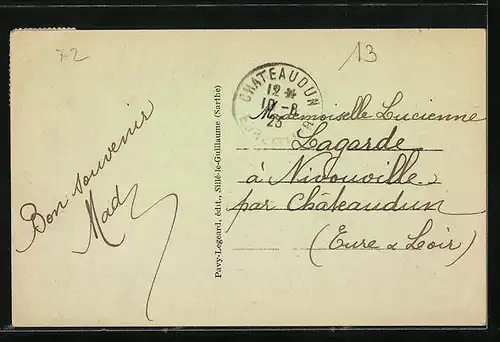 72
13
CHATEAUDUN
12 *
10 - 8
25
Bon souvenir
Mad
Pavy-Legeard, édit., Sillé-le-Guillaume (Sarthe)
Mademoiselle Lucienne
Lagarde
à Nivouville
par Châteaudun
(Eure & Loir)